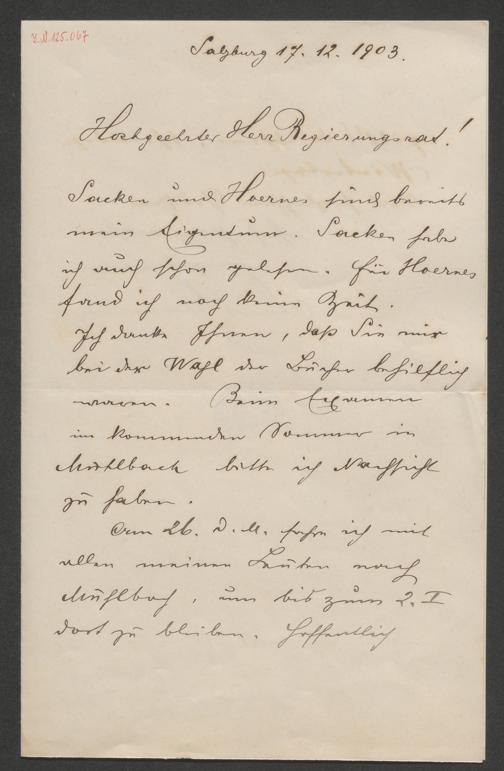 I.N. 125.067
Salzburg 17. 12. 1903.
Hochgeehrter Herr Regierungsrat!
Sacken und Hoernes sind bereits
mein Eigentum. Sacken habe
ich auch schon gelesen. Für Hoernes
fand ich noch keine Zeit.
Ich danke Ihnen, daß Sie mir
bei der Wahl der Bücher behilflich
waren. Beim Examen
im kommenden Sommer in
Mühlbach bitte ich Nachsicht
zu haben.
Am 26. d. M. fahre ich mit
allen meinen Leuten nach
Mühlbach, um bis zum 2. I
dort zu bleiben. Hoffentlich